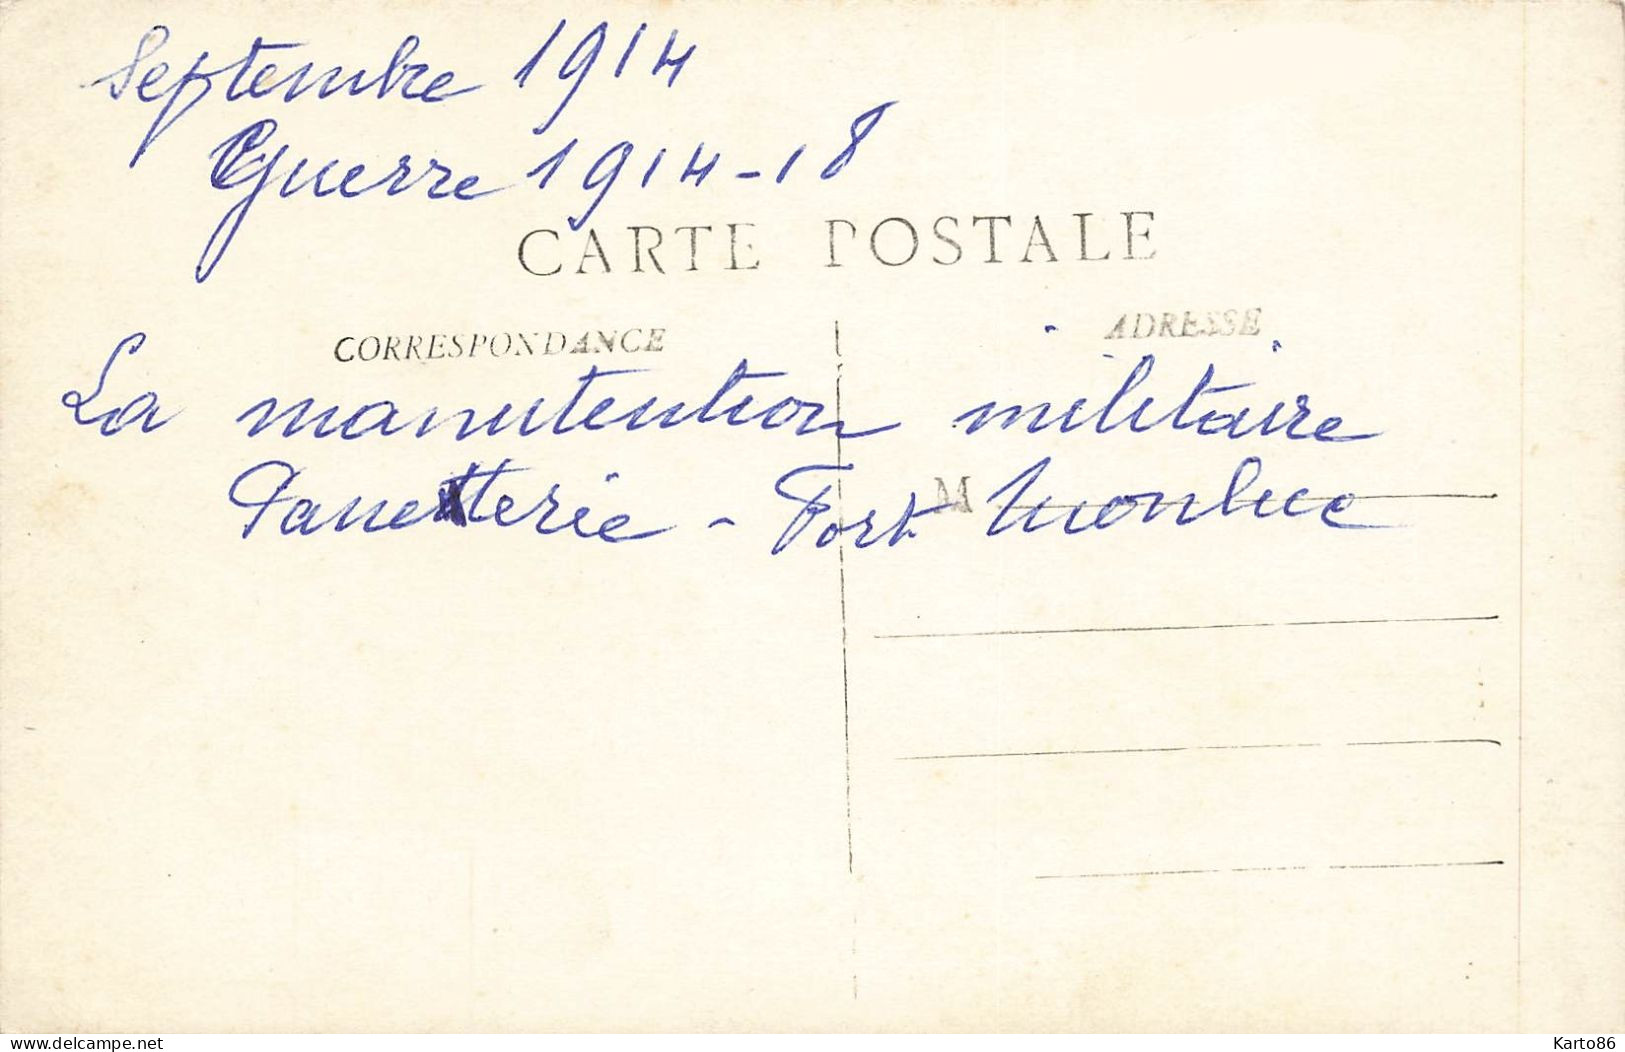 Septembre 1914
Guerre 1914-18
CARTE POSTALE
CORRESPONDANCE
ADRESSE
La manutention militaire
Panetterie - Fort Monluc
M
delcampe.net
Karto86